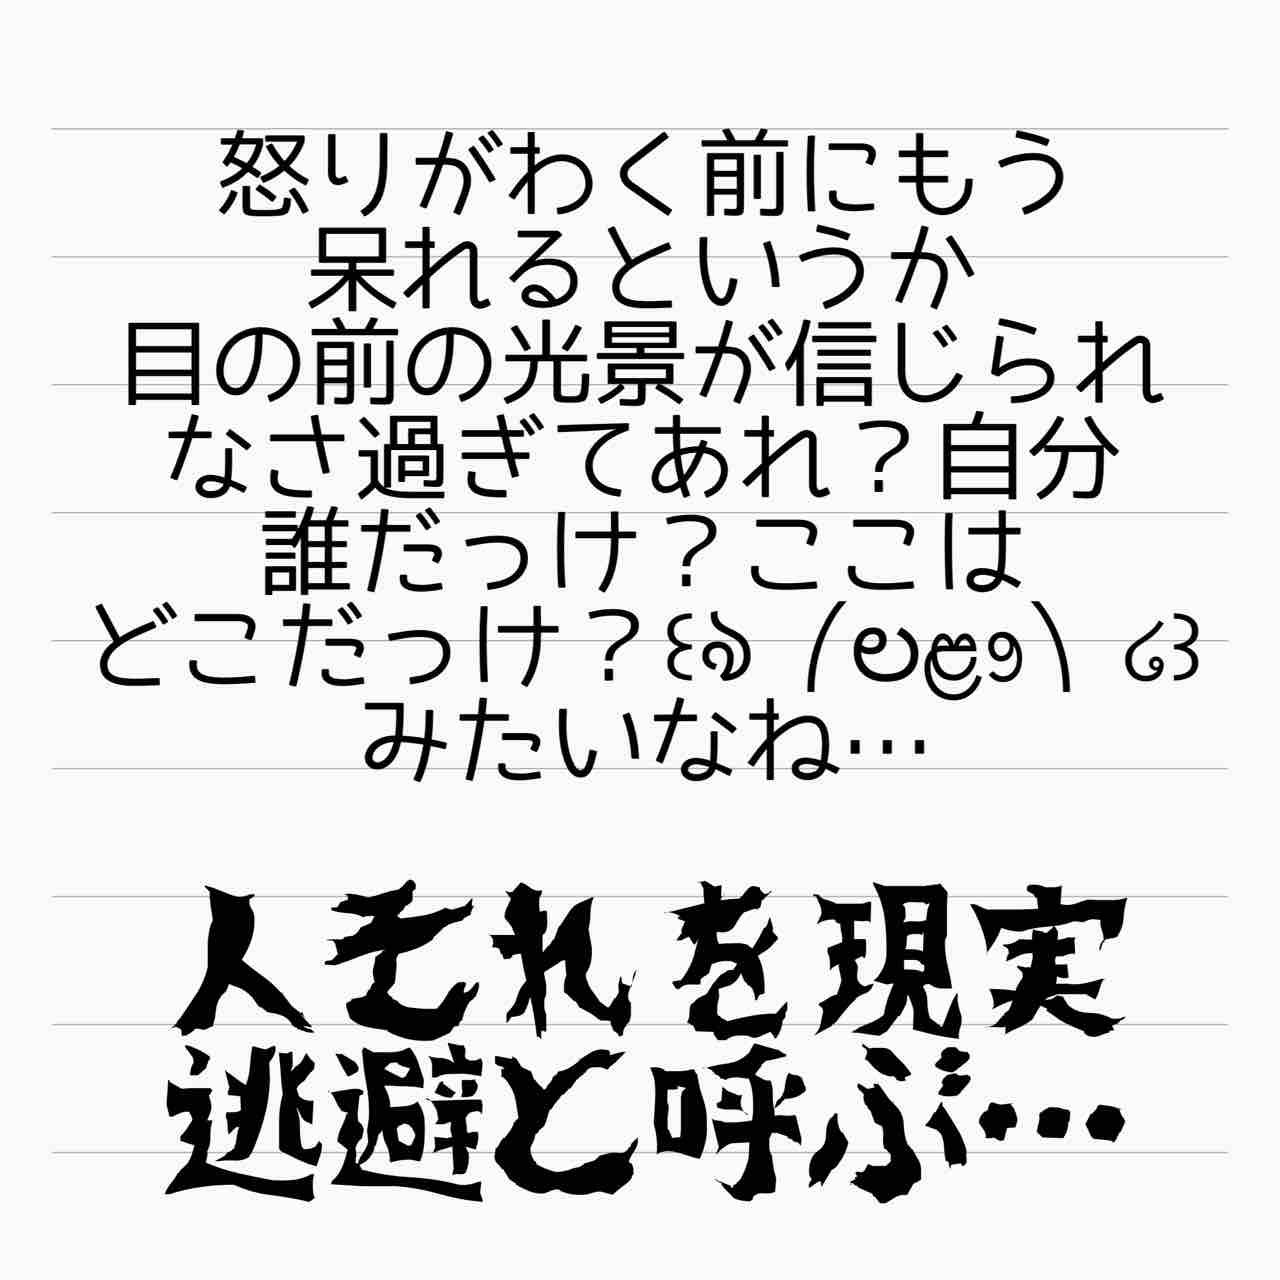 怒りがわく前にもう
呆れるというか
目の前の光景が信じられ
なさ過ぎてあれ？自分
誰だっけ？ここは
どこだっけ？꒰ঌ ⎛ಲළ൭⎞ ໒꒱
みたいなね…
人それを現実
逃避と呼ぶ…